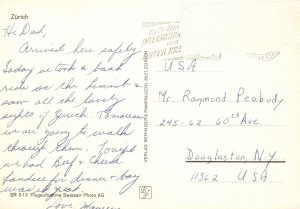 Zürich
Hi Dad,
Arrived here safely
today. We took a boat
ride on the Limmat &
saw all the lovely
sights of Zurich. Tomorrow
we are going to walk
through them. Tonight
we had Beef & Cheese
fondue for dinner - boy
was it good.
Love
SR 513 Flugaufnahme Swissair Photo AG
VERLAG BERINGER & PAMPALUCHI, 8627 ZÜRICH
INTERNATION
ROTEN KREUZ
USA
Mr. Raymond Peabody
245-62 60th Ave
Douglaston, NY
11362 USA